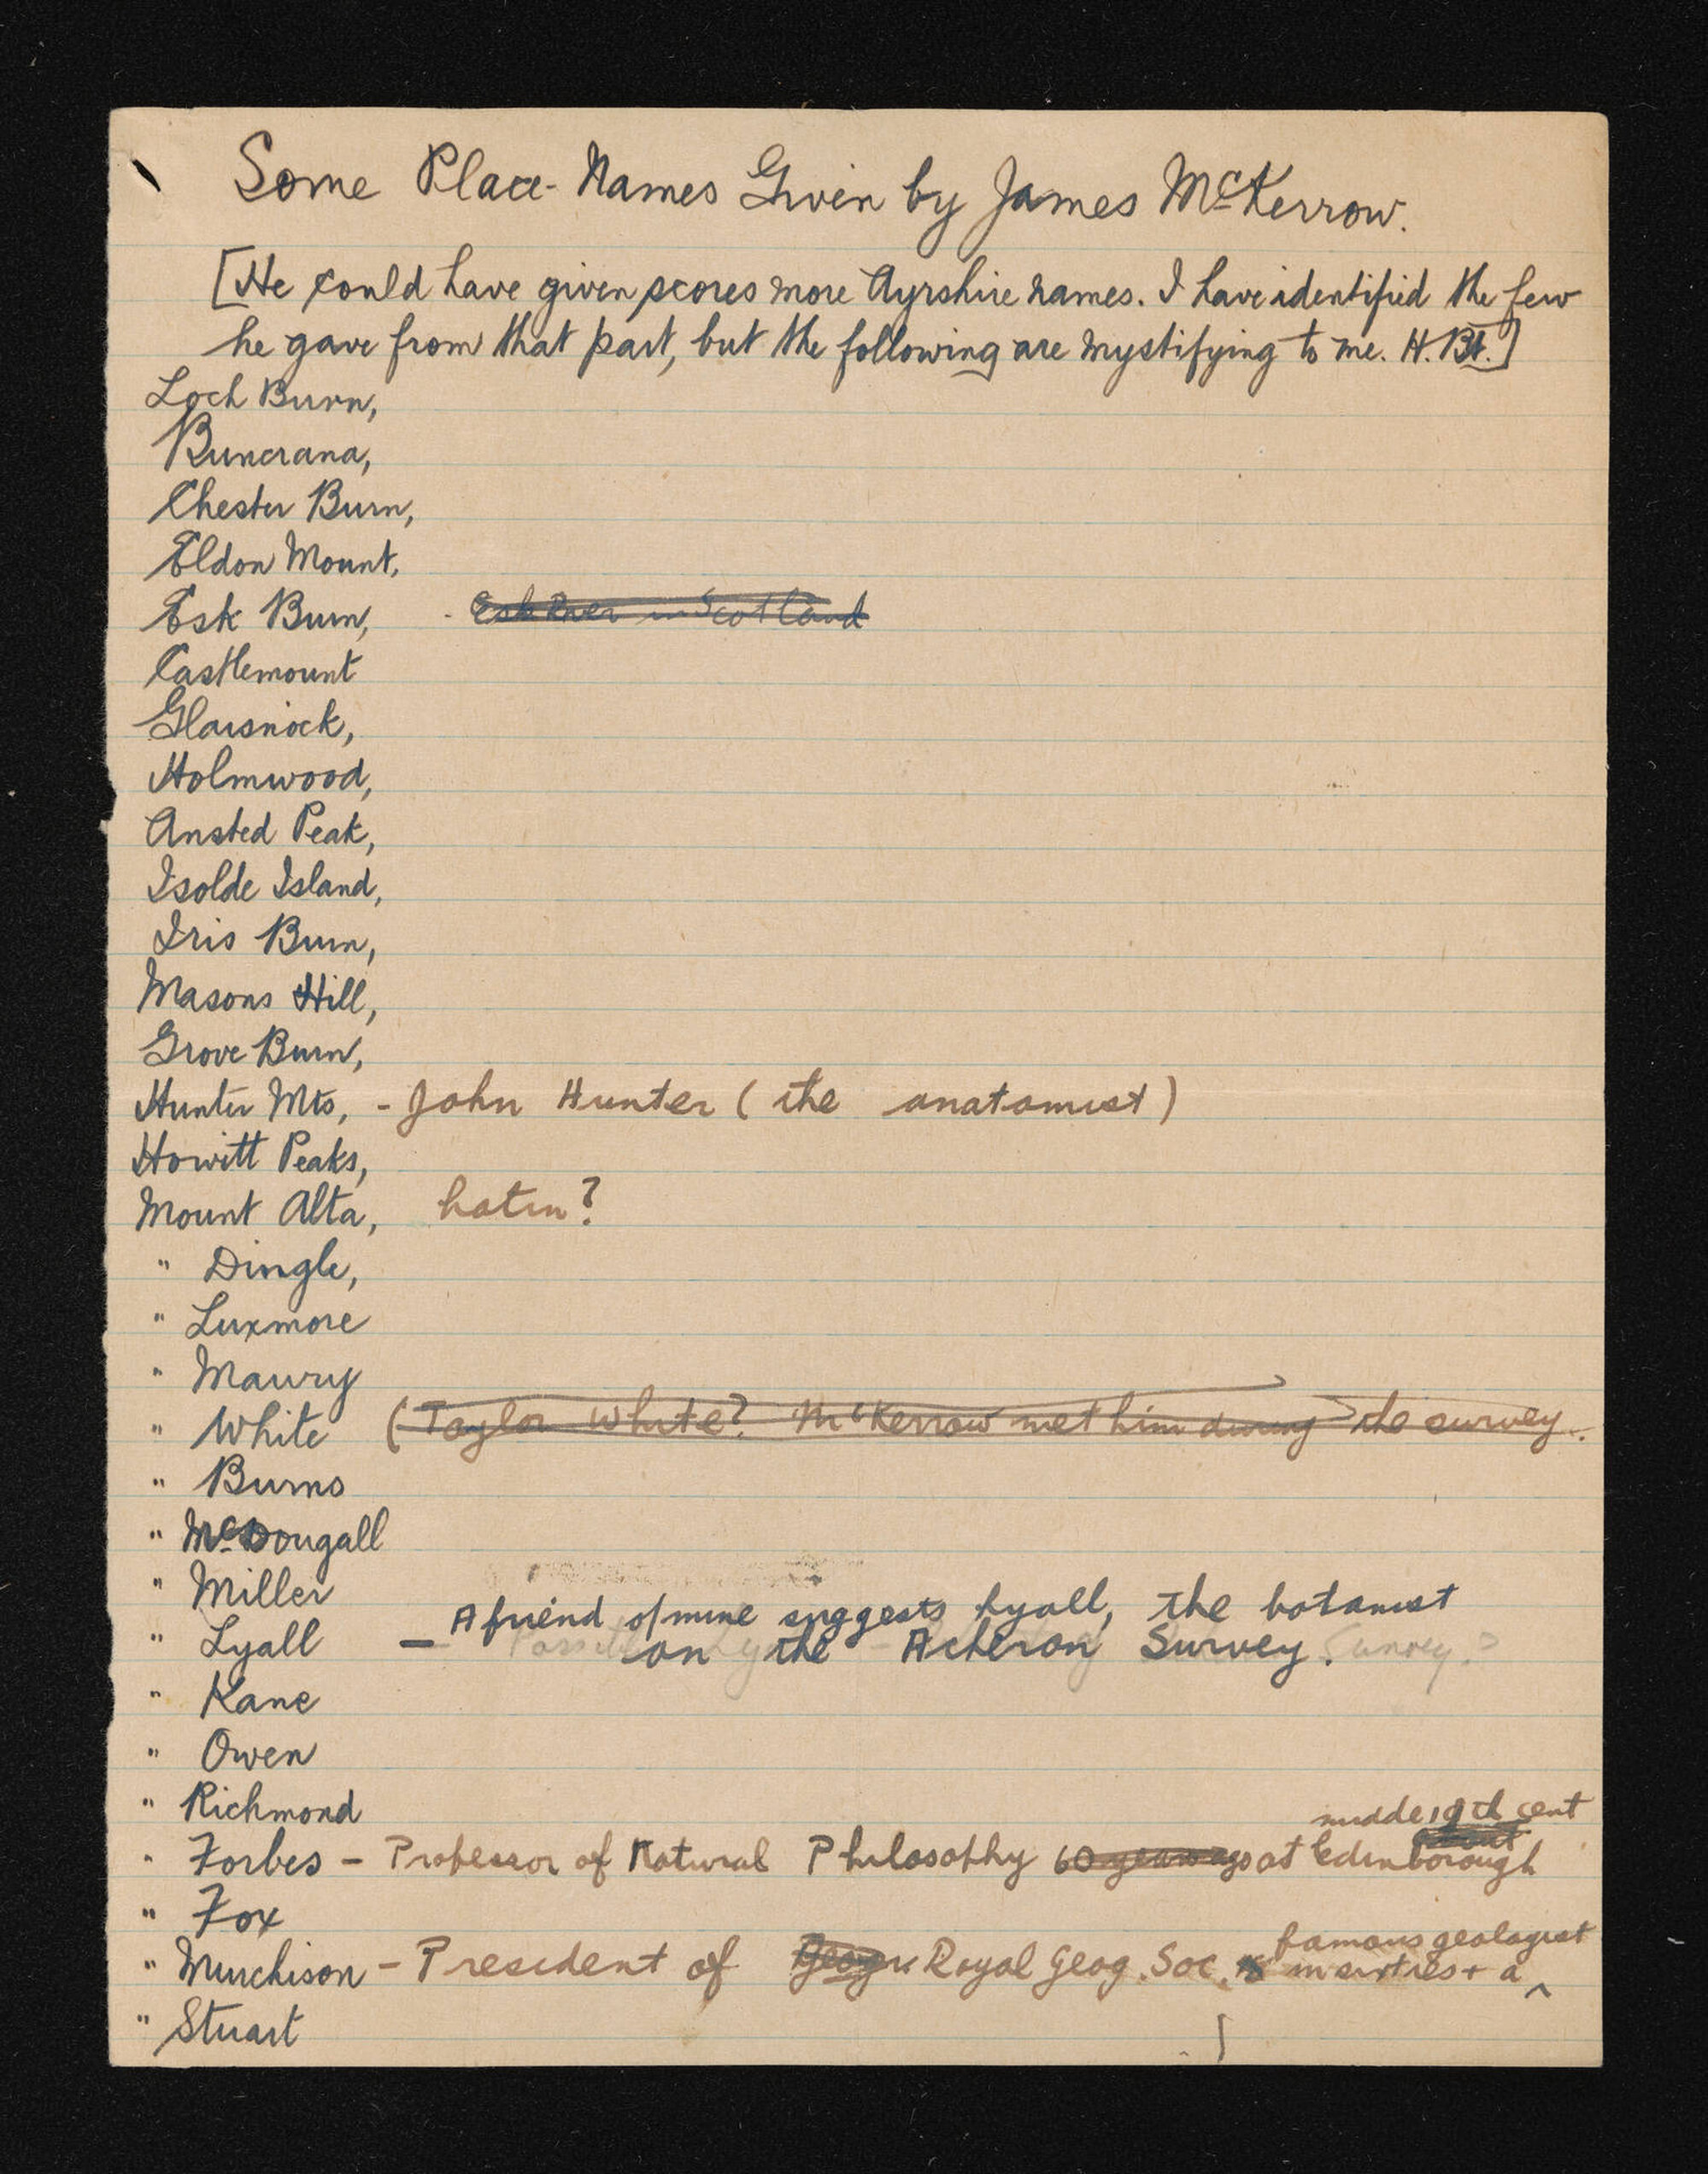 Some Place-Names Given by James McKerrow.
[He could have given scores more Ayrshire names. I have identified the few
he gave from that part, but the following are mystifying to me. H. Bt.]
Loch Burn,
Buncrana,
Chester Burn,
Eldon Mount,
Esk Burn, - Esk River in Scotland
Castlemount
Glaisnock,
Holmwood,
Ansted Peak,
Isolde Island,
Iris Burn,
Masons Hill,
Grove Burn,
Hunter Mts, - John Hunter (the anatomist)
Howitt Peaks,
Mount Alta, hatin?
" Dingle,
" Luxmore
" Maury
" White (Taylor White? McKerrow met him during the survey.
" Burns
" McDougall
" Miller
" Lyall — A friend of mine suggests Lyall, the botanist
on the Acheron Survey.
" Kane
" Owen
" Richmond
midde 19th cent
" Forbes - Professor of Natural Philosophy 60 years ago at Edinborough
" Fox
famous geologist
" Murchison - President of Geog Royal Geog. Soc. in sixties + a ^
" Stuart